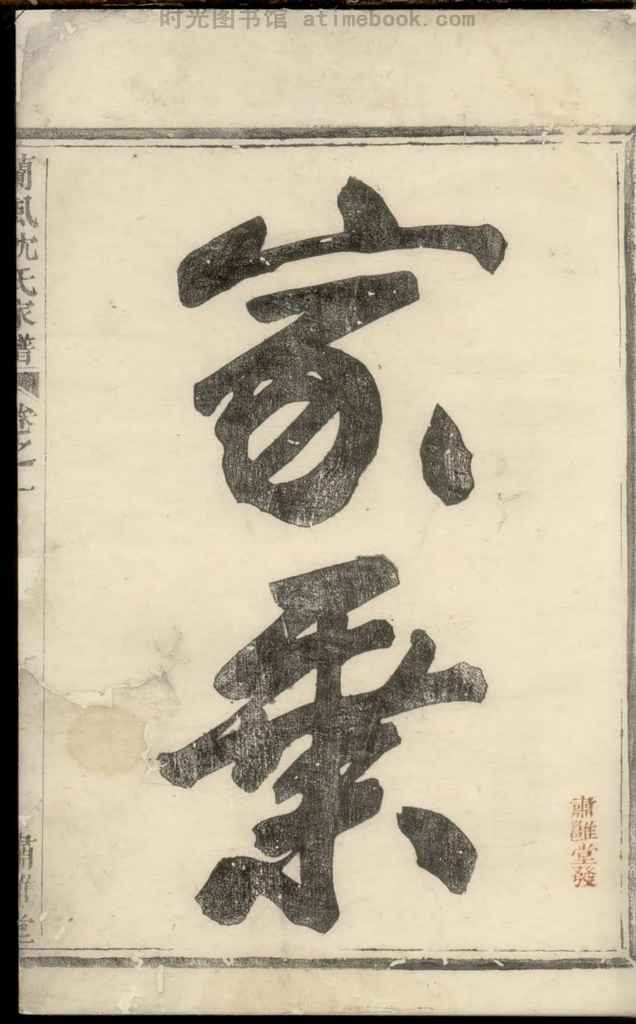 时光图书馆 atimebook.com
家乘
肅雝堂發
蘭風沈氏家譜 卷之一
肅雝堂